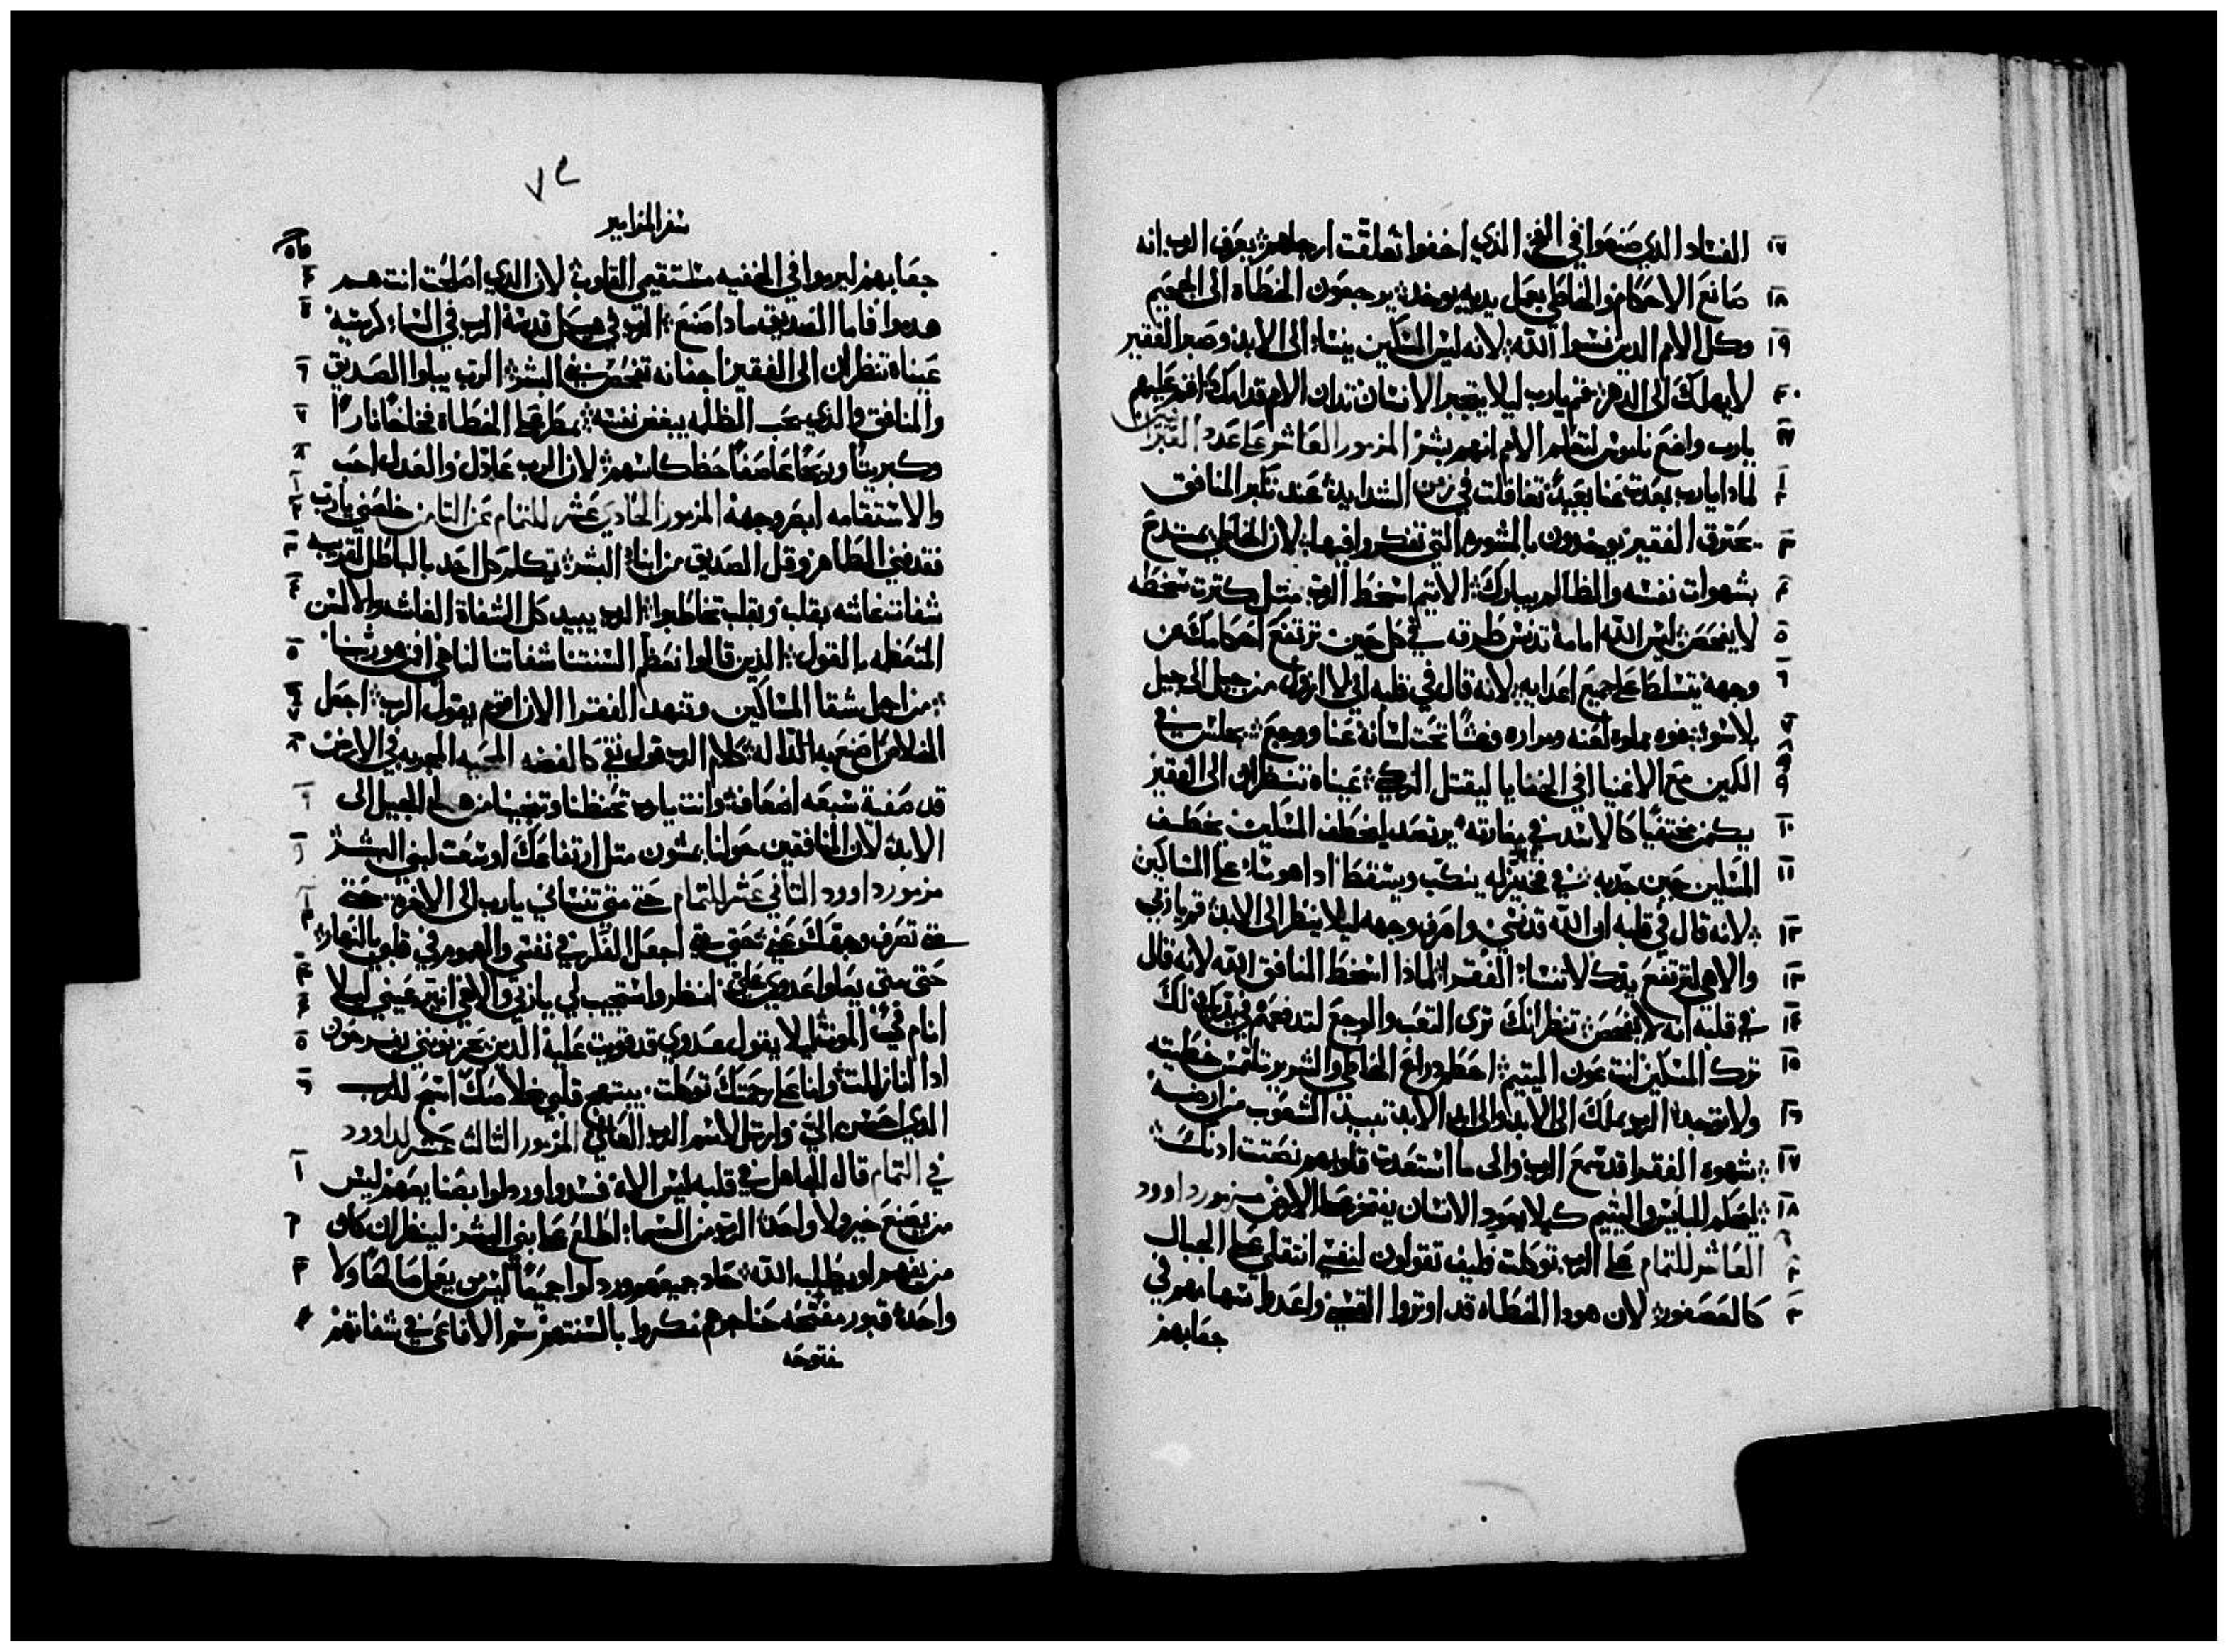 الفساد الذي صنعوا في الفخ الذي اخفوا تعلقت ارجلهم يعرف الرب انه ١٧
صانع الاحكام والخاطي بعمل يديه يوخذ يرجعون الخطاه الى الجحيم ١٨
وكل الامم الذين نسوا الله لانه ليس المسكين ينسا الى الابد وصبر الفقير ١٩
لا يهلك الى الدهر قم يارب ليلا يتجبر الانسان تدان الامم قدامك اقم عليهم ٢٠
يارب واضع ناموس لتعلم الامم انهم بشر المزمور العاشر على عدد العبران
لماذا يارب بعدت عنا بعيدا تغافلت في زمن الشدايد عند تكبر المنافق
يحترق الفقير يوخدون بالمشوره التي تفكروا فيها لان الخاطي يمتدح ٣
بشهوات نفسه والظالم يبارك الاتيم اسخط الرب متل كترت سخطه ٤
لا يفحص ليس الله امامه تدنس طرقه في كل حين ترتفع احكامك عن ٥
وجهه يتسلط على جميع اعدايه لانه قال في قلبه اني لا ازول من جيل الى جيل ٦
بلا سوء فوه مملوه لعنه ومراره وغشا تحت لسانه عنا ووجع يجلس في ٧ ٨
الكمين مع الاغنيا في الخفايا ليقتل الزكي عيناه تنظران الى الفقير ٩
يكمن مختفيا كالاسد في مغارته يرتصد ليخطف المسكين يخطف ١٠
المسكين حين جدبه في فخ يزله ينكب ويسقط اداهو تسا على المساكين ١١
لانه قال في قلبه ان الله قد نسي وامرف وجهه ليلا ينظر الى الابد قم يا ربي ١٢
والاهي لترتفع يدك لا تنسا الفقرا لماذا اسخط المنافق الله لانه قال ١٣
في قلبه انه لا يفحص تنظر انك ترى التعب والوجع لتدفعهم في يديك لك ١٤
ترك المسكين انت عون اليتيم احطم دراع الخاطي والشرير تلتمس خطيته ١٥
ولا توجد الرب يملك الى الابد والى ابد الابد تبيد الشعوب من ارضه ١٦
شهوه الفقرا قد سمع الرب والى ما استعدت قلوبهم نصتت ادنك ١٧
ليحكم للبايس واليتيم كيلا يعود الانسان يفتخر على الارض مزمور داوود ١٨
العاشر للتمام على الرب توكلت فكيف تقولون لنفسي انتقلي على الجبال ٢
كالعصفور لان هودا الخطاه قد اوتروا القسي واعدوا سهامهم في ٣
جعابهم
٧٤
سفر المزامير
جعابهم ليرموا في الخفيه مستقيمي القلوب لان الذي اصلحت انت هم ٤
هدموا فاما الصديق ماذا صنع الرب في هيكل قدسه الرب في السماء كرسيه ٥
عيناه تنظران الى الفقير اجفانه تفحص بني البشر الرب يبلوا الصديق ٦
والمنافق والذي يحب الظلم يبغض نفسه يمطر على الخطاة فخاخا نارا ٧
وكبريتا وريحا عاصفا حظ كاسهم لان الرب عادل والعدل احب ٨
والاستقامه ابصر وجهه المزمور الحادي عشر للتمام عن التامن خلصني يارب ٢
فقد فني الطاهر وقل الصديق من ابناء البشر تكلم كل احد بالباطل لقريبه ٣
شفاتا غاشه بقلب وبقلب تخاطبوا الرب يبيد كل الشفاة الغاشه والالسن ٤
المتعظمه بالقول الذين قالوا نعظم السنتنا شفاتنا لنا هي افمن هو ربنا ٥
من اجل شقا المساكين وتنهد الفقرا الان اقوم يقول الرب اجعل ٦
الخلاص اصنع به الداله كلام الرب قول نقي كالفضه المحميه المجربه في الارض ٧
قد صفية سبعه اضعاف وانت يارب تحفظنا وتنجينا من هذا الجيل الى ٨
الابد لان المنافقين حولنا يمشون متل ارتفاعك اوسعت لبني البشر ٩
مزمور داوود التاني عشر للتمام حتى متى تنساني يارب الى الاخره حتى
متى تصرف وجهك عني حتى متى اجعل الفكر في نفسي والهموم في قلبي بالنهار
حتى متى يعلوا عدوي علي انظر واستجيب لي يا ربي والاهي انير عيني ليلا ٤
انام في الموت ليلا يقول عدوي قد قويت عليه الذين يحزنونني يفرحون ٥
ادا انا زللت وانا على رحمتك توكلت يبتهج قلبي بخلاصك اسبح للرب ٦
الذي احسن الي وارتل لاسم الرب العالي المزمور الثالث عشر لداوود
في التمام قال الجاهل في قلبه ليس الاه فسدوا وردلوا بصنايعهم ليس ١
من يصنع خير ولا واحد الرب من السماء اطلع على بني البشر لينظر ان كان ٢
من يفهم او يطلب الله حاد جميعهم وردلوا جميعا ليس من يعمل صالحا ولا ٣
واحد قبور مفتحه حناجرهم مكروا بالسنتهم سم الافاعي في شفاتهم
مفتوحه